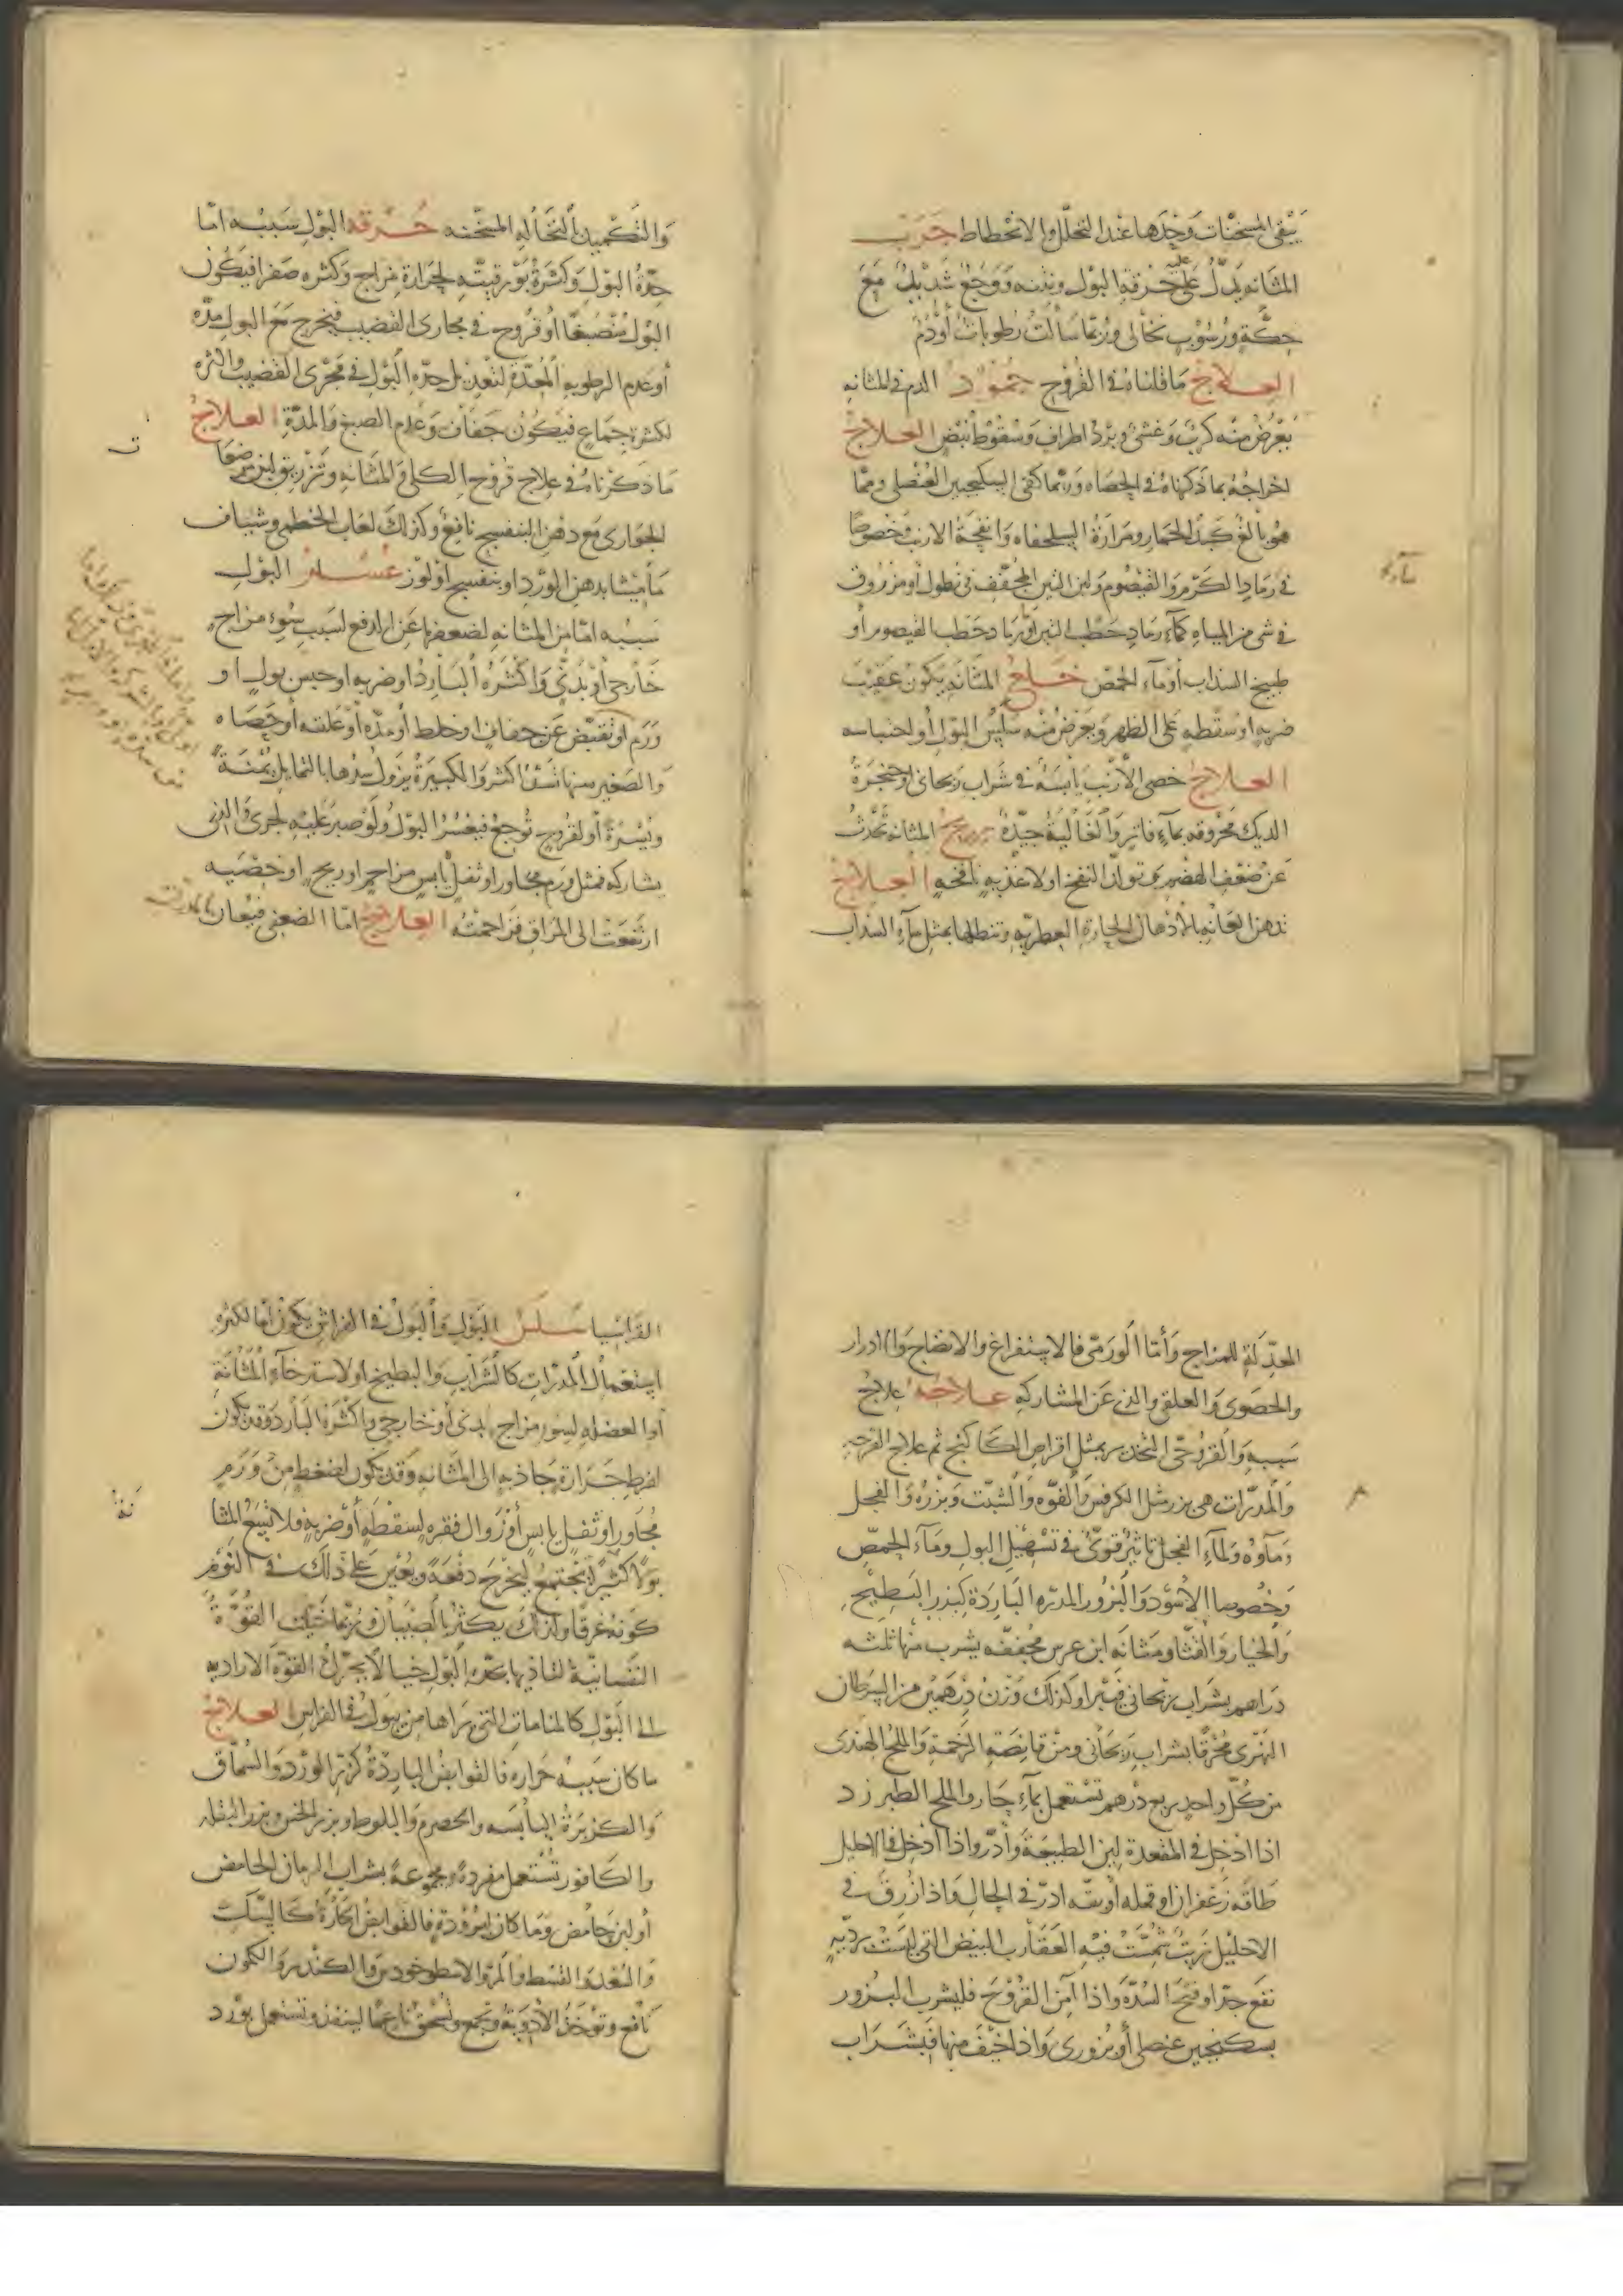 يبقى المسخنات وحدها عند التحلل والانحطاط جرب
المثانة يدل عليه حرقة البول ونتنه ووجع شديد مع
حكة ورسوب نخالي وربما سالت رطوبات أو دم
العلاج ما قلناه في القروح جمود الدم في المثانة
يعرض منه كرب وغشي وبرد أطراف وسقوط نبض العلاج
اخراجه بما ذكرناه في الحصاه وربما كفى السكنجبين العنصلي ومما
هو بالغ كبد الحمار ومرارة السلحفاه وانفحة الارنب خصوصا
في رماد الكرم والقيصوم ولبن التين المجفف في نطول أو مزروق
في شي من المياه كماء رماد حطب التين أو رماد حطب القيصوم أو
طبيخ السذاب أو ماء الحمص خلع المثانة يكون عقيب
ضربه او سقطه على الظهر ويعرض منه سلس البول أو احتباسه
العلاج خصى الأرنب يابسة في شراب ريحاني او حنجرة
الديك محروقه بماء فاتر والغالية جيدة ريح المثانة تحدث
عن ضعف الهضم تولد النفخ او لاغذيه نافخه العلاج
تدهن العانه بالأدهان الحارة العطريه وتنطلها بمثل ماء السذاب
والتكميد بالنخاله المسخنه حرقه البول سببه اما
حدة البول وكثرة بورقيته لحرارة مزاج وكثره صفرا فيكون
البول منصبغا أو قروح في مجاري القضيب فيخرج مع البول مده
أو عدم الرطوبه المعدة لتعديل حدة البول في مجرى القضيب واكثره
لكثرة جماع فيكون جفاف وعدم الصبغ والمدة العلاج
ما ذكرناه في علاج قروح الكلى والمثانه وتزريق لبن مرضعات
الجواري مع دهن البنفسج نافع وكذلك لعاب الخطمي وشياف
ماميثا بدهن الورد او بنفسج او لوز عسر البول
سببه اما من المثانه لضعفها عن الدفع لسبب سوء مزاج
خارجي أو بدني واكثره البارد او ضربه او حبس بول او
ورم او تقبض عن جفاف او خلط أو مدة أو علقه أو حصاه
والصغير منها تسد أكثر والكبيرة يزول سدها بالتمايل يمنة
ويسرة أو لقروح توجع فيعسر البول ولو صبر عليه لجرى والذي
بشاركه فمثل ورم مجاور او ثفل يابس مزاحم او ريح او خصيه
ارتفعت الى المراق فزاحمته العلاج اما الضعفي فيعان بالمدرات
المعدلة للمزاج وأما الورمي فالاستفراغ والانضاج والادرار
والحصوي والعلقي والذي عن المشاركه علاجه علاج
سببه والقروحي التخدير بمثل اقراص الكاكنج ثم علاج القرحه
والمدرات هي بزر مثل الكرفس والفوه والشبت وبزره والفجل
وماؤه ولماء الفجل تاثير قوي في تسهيل البول وماء الحمص
وخصوصا الأسود والبزور المدره الباردة كبزر البطيخ
والخيار والقثا ومثانه ابن عرس مجففه يشرب منها ثلثه
دراهم بشراب ريحاني فيبرا وكذلك وزن درهمين من السرطان
النهري محرقا بشراب ريحاني ومن قانصة الرخمة والملح الهندي
من كل واحد ربع درهم تستعمل بماء حار والملح الطبرزد
اذا ادخل في المقعدة لين الطبيعة وأدر واذا ادخل في الاحليل
طاقه زعفران او قمله أو بقه ادر في الحال واذا زرق في
الاحليل زيت شمست فيه العقارب البيض التي ليست بردية
نفع جدا وفتح السدة واذا أمن القروح فليشرب البزور
بسكنجبين عنصلي أو بزوري واذا خيف منها فبشراب
القراسيا سلس البول والبول في الفراش يكون اما لكثره
استعمال المدرات كالشراب والبطيخ او لاسترخاء المثانة
أو العضله لسوء مزاج بدني أو خارجي واكثره البارد وقد يكون
لفرط حرارة جاذبه الى المثانه وقد يكون لضغط من ورم
مجاور او ثفل يابس أو زوال فقره لسقطه أو ضربه فلا تسع المثانة
بولا كثيرا يجتمع ليخرج دفعة ويعين على ذلك في النوم
كونه غرقا ولذلك يكثر بالصبيان وربما خيلت القوة
النفسانية لتاذيها بحده البول خيالا يحرك القوة الارادية
الى البول كالمنامات التي يراها من يبول في الفراش العلاج
ما كان سببه حراره فالقوابض الباردة كزر الورد والسماق
والكزبرة اليابسه والحصرم والبلوط وبزر الخس وبزر البقله
والكافور تستعمل مفردة ومجموعة بشراب الرمان الحامض
أو لبن حامض وما كان لبرودة فالقوابض الحارة كالسك
والسعد والقسط والمر والاسطوخودس والكندر والكمون
نافع وتوخذ الأدوية وتجمع وتسحق ناعما لينفذ وتستعمل بورد